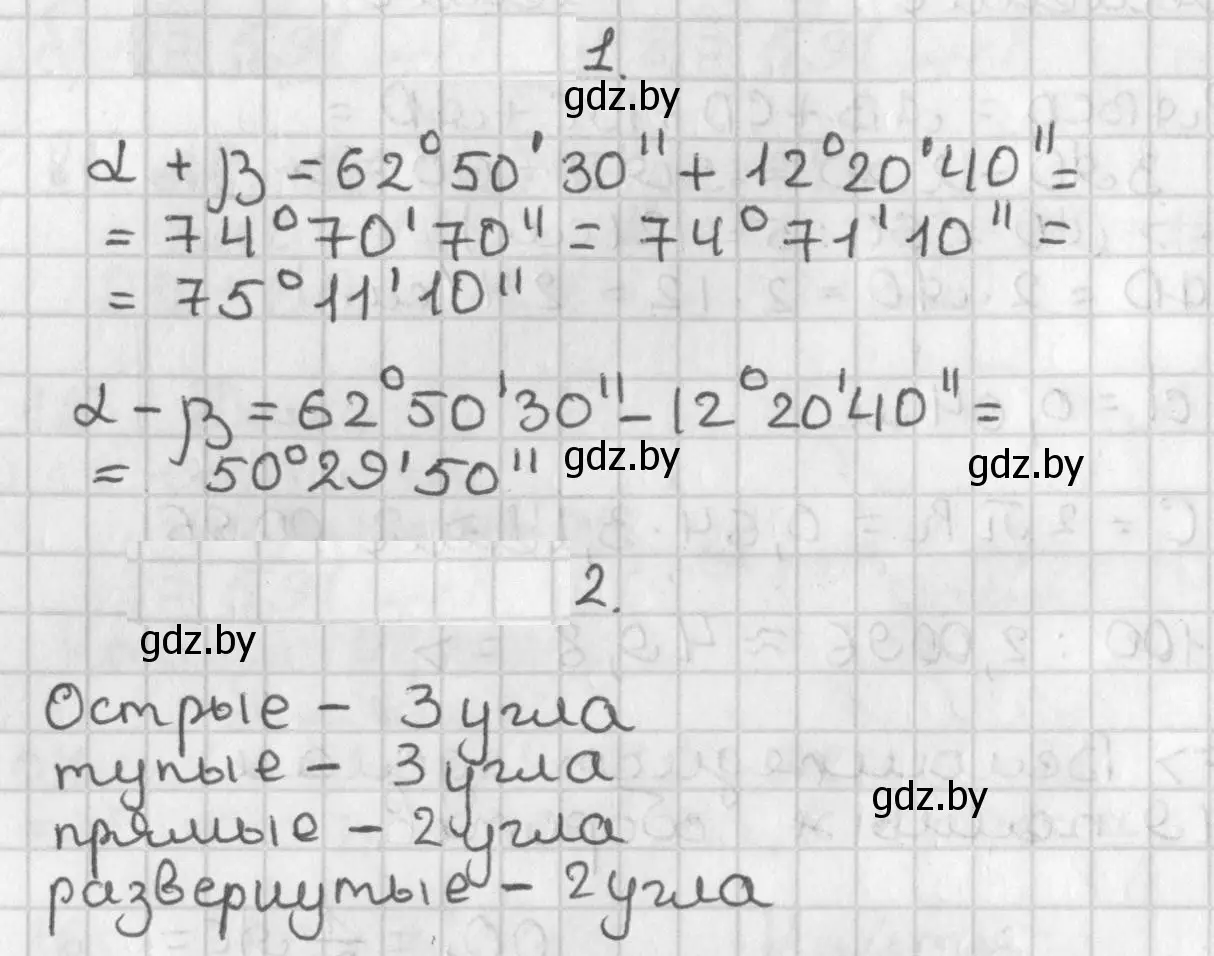 1.
gdz.by
α + β = 62°50'30" + 12°20'40" =
= 74°70'70" = 74°71'10" =
= 75°11'10"
α - β = 62°50'30" - 12°20'40" =
= 50°29'50"
gdz.by
gdz.by
2.
gdz.by
Острые - 3 угла
тупые - 3 угла
gdz.by
прямые - 2 угла
развернутые - 2 угла